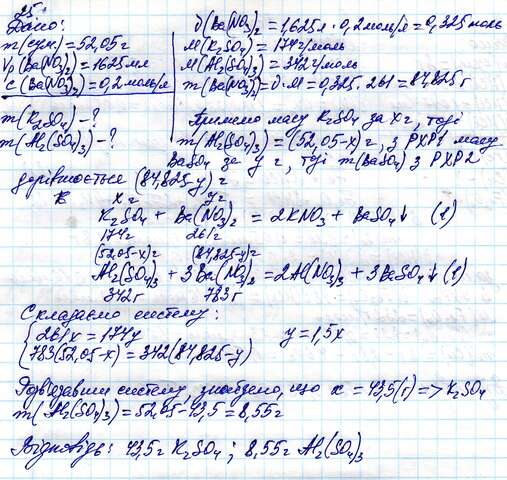 25.
Дано:
m(сум.)=52,05г
Vр(Ba(NO₃)₂)=1625мл
c(Ba(NO₃)₂)=0,2моль/л
m(K₂SO₄)-?
m(Al₂(SO₄)₃)-?
ν(Ba(NO₃)₂=1,625л·0,2моль/л=0,325моль
M(K₂SO₄)=174г/моль
M(Al₂(SO₄)₃)=342г/моль
m(Ba(NO₃)₂)=ν·M=0,325·261=84,825г
Приймемо масу K₂SO₄ за x г, тоді
m(Al₂(SO₄)₃)=(52,05-x)г, з РХР1 масу
BaSO₄ за y г, тоді m(BaSO₄) з РХР2
дорівнюється (84,825-y)г
xг yг
K₂SO₄ + Ba(NO₃)₂ = 2KNO₃ + BaSO₄↓ (1)
174г 261г
(52,05-x)г (84,825-y)г
Al₂(SO₄)₃ + 3Ba(NO₃)₂ = 2Al(NO₃)₃ + 3BaSO₄↓ (1)
342г 783г
Складаємо систему:
{261x=174y y=1,5x
783(52,05-x)=342(84,825-y)
Розв'язавши систему, знайдено, що x=43,5(г)=>K₂SO₄
m(Al₂(SO₄)₃)=52,05-43,5=8,55г
Відповідь: 43,5г K₂SO₄; 8,55г Al₂(SO₄)₃